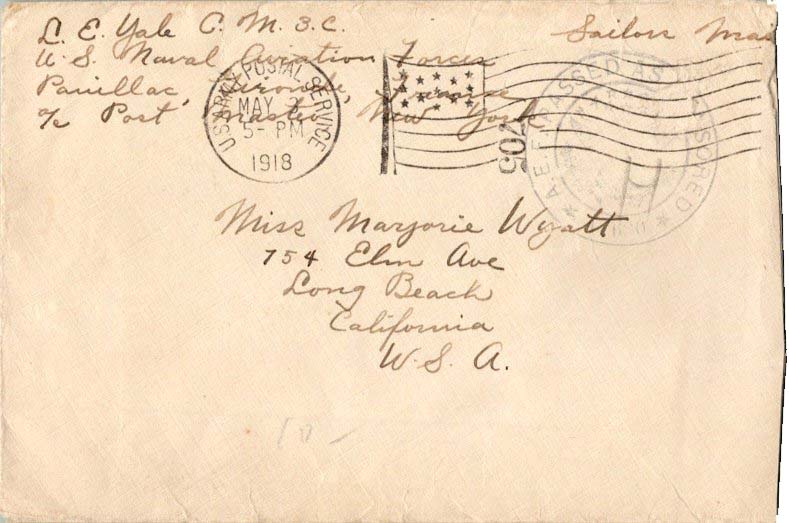 L. E. Yale C. M. 3. C.
Sailors Mai
U. S. Naval Aviation Forces
Pauillac, Gironde, France
c/o Post master New York
U.S. ARMY POSTAL SERVICE
MAY 3
5- PM
1918
705
A.E.F. PASSED AS CENSORED
Miss Marjorie Wyatt
754 Elm Ave
Long Beach
California
U. S. A.